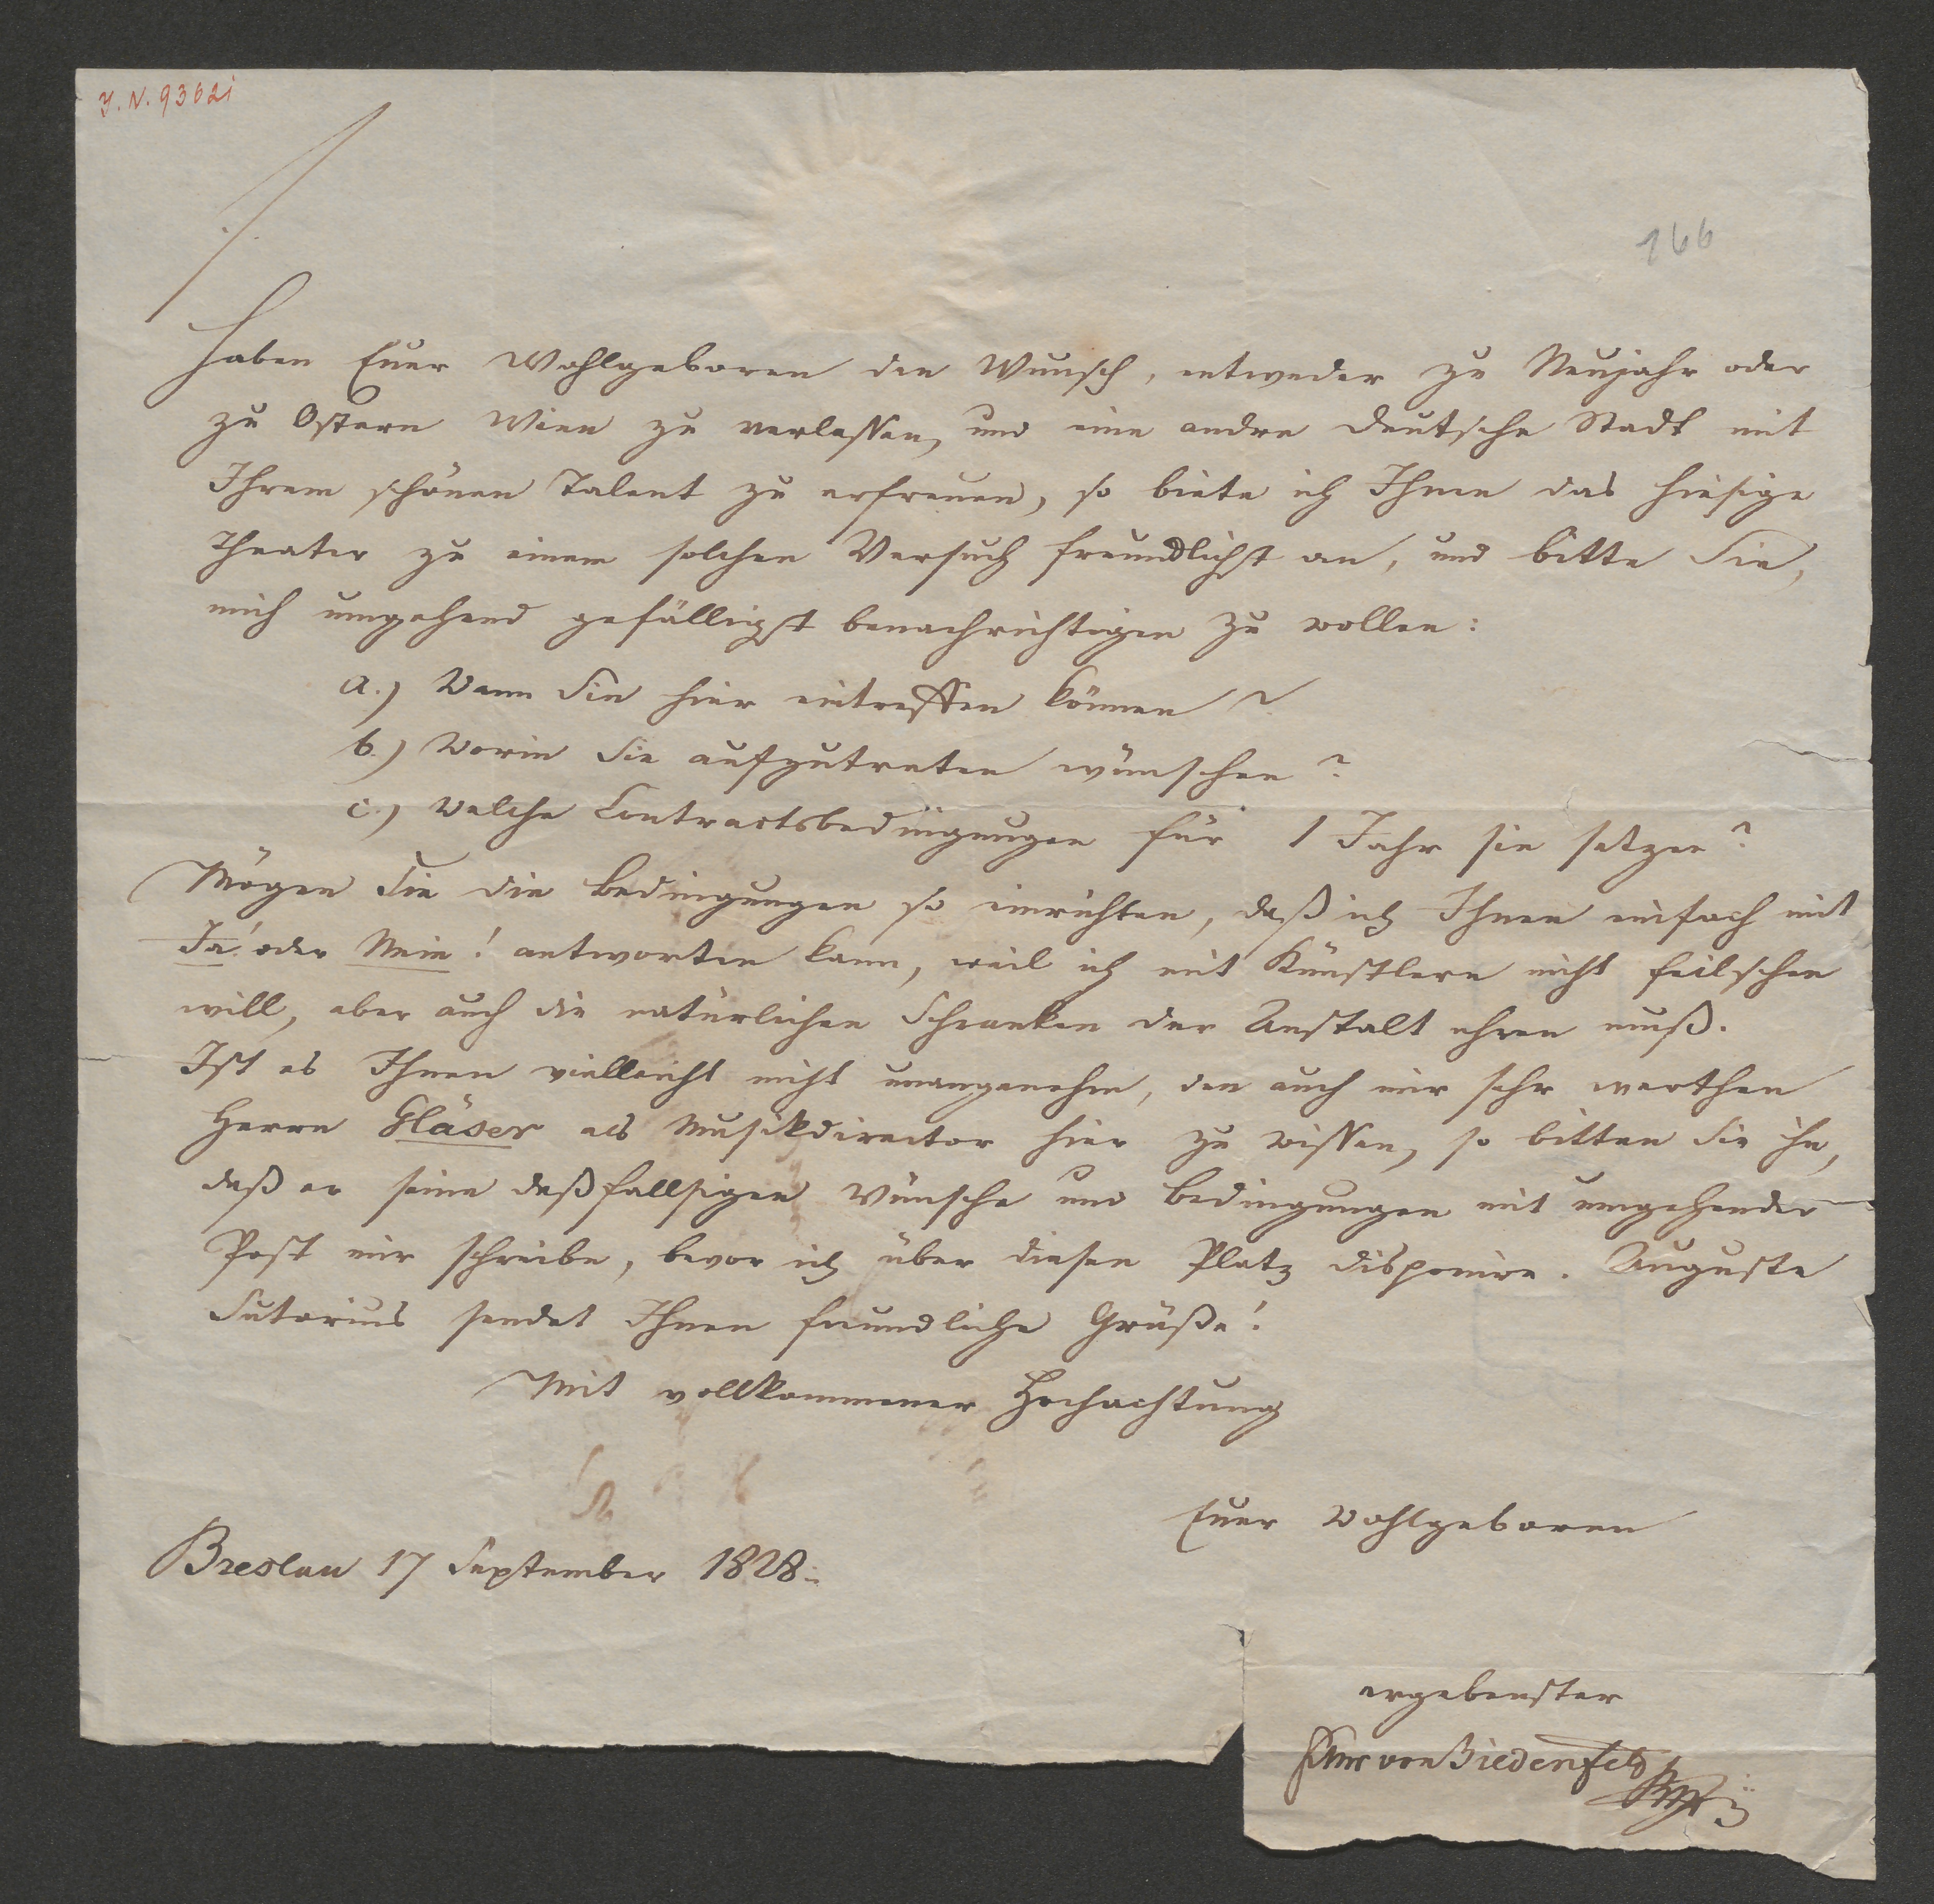 J. N. 93621
166
Haben Euer Wohlgeboren den Wunsch, entweder zu Neujahr oder
zu Ostern Wien zu verlassen, und eine andre deutsche Stadt mit
Ihrem schönen Talent zu erfreuen, so biete ich Ihnen das hiesige
Theater zu einem solchen Versuch freundlichst an, und bitte Sie,
mich umgehend gefälligst benachrichtigen zu wollen:
a.) Wann Sie hier eintreffen können?
b.) Worin Sie aufzutreten wünschen?
c.) Welche Contractsbedingungen für 1 Jahr sie setzen?
Mögen Sie die Bedingungen so einrichten, daß ich Ihnen einfach mit
Ja! oder Nein! antworten kann, weil ich mit Künstlern nicht feilschen
will, aber auch die natürlichen Schranken der Anstalt ehren muß.
Ist es Ihnen vielleicht nicht unangenehm, den auch mir sehr werthen
Herrn Gläser als Musikdirector hier zu wissen, so bitten Sie ihn,
daß er seine deßfallsigen Wünsche und Bedingungen mit umgehender
Post mir schreibe, bevor ich über diesen Platz disponire. Auguste
Sutorius sendet Ihnen freundliche Grüße!
Mit vollkommener Hochachtung
Euer Wohlgeboren
Breslau 17 September 1828.
ergebenster
von Biedenfeld